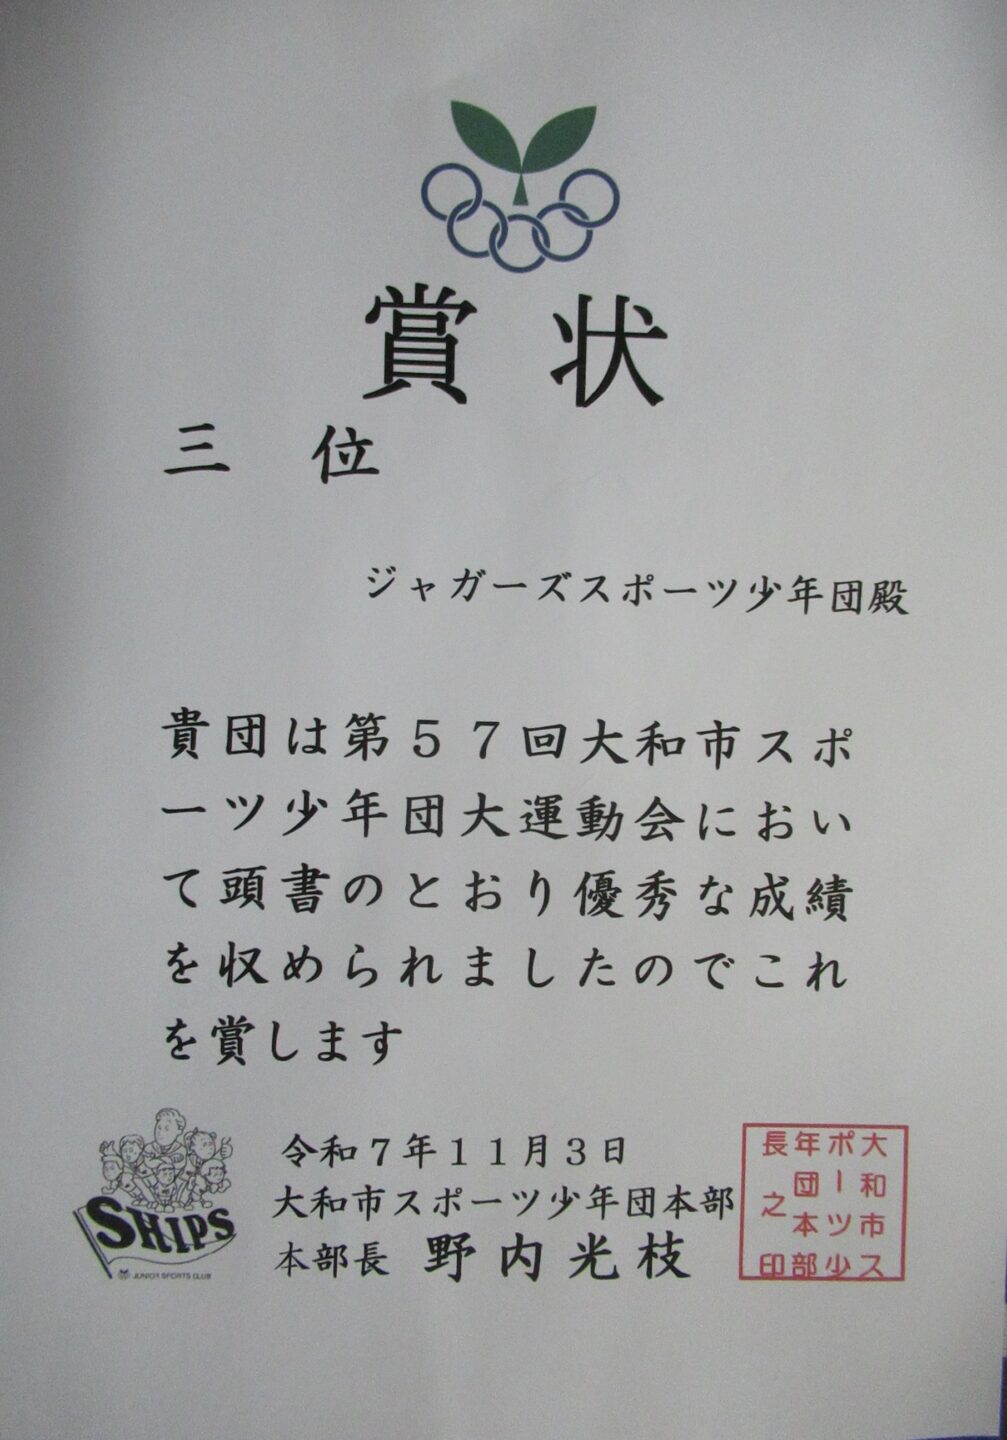 賞状
三位
ジャガーズスポーツ少年団殿
貴団は第５７回大和市スポ
ーツ少年団大運動会におい
て頭書のとおり優秀な成績
を収められましたのでこれ
を賞します
令和７年１１月３日
大和市スポーツ少年団本部
本部長 野内光枝
大和市ス
ポーツ少
年団本部
長之印
SHIPS
JUNIOR SPORTS CLUB